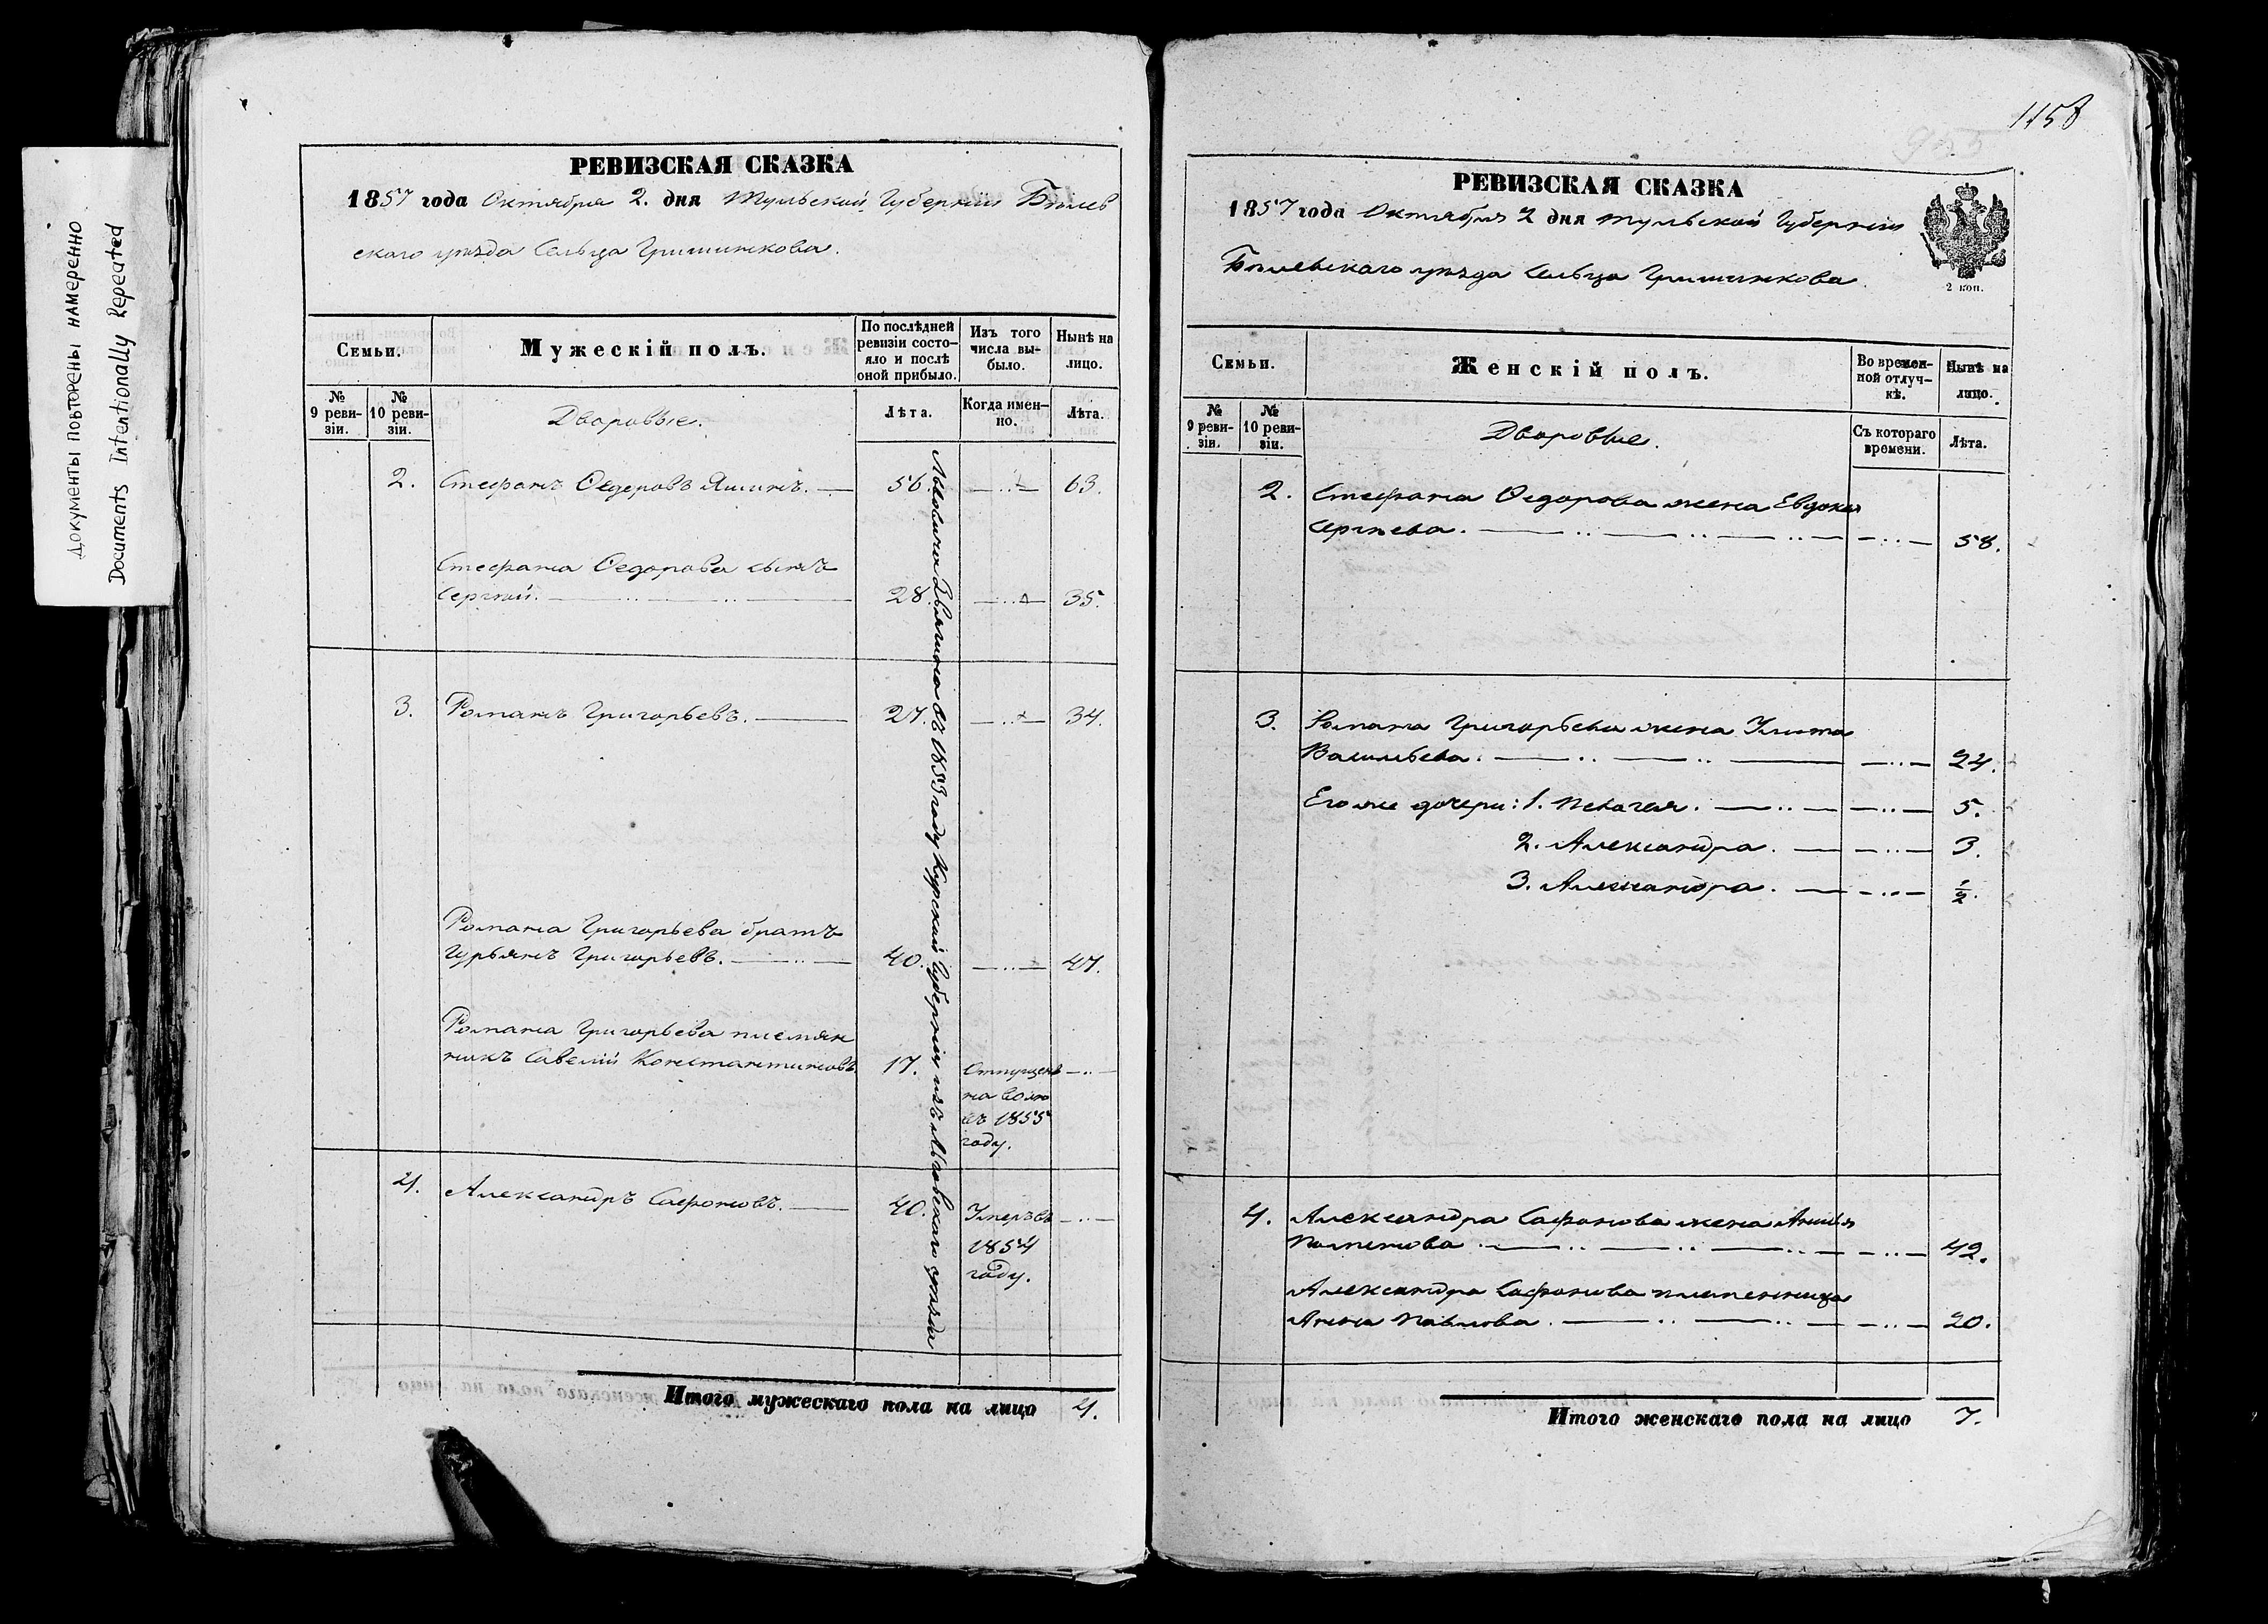 Документы повторены намеренно
Documents Intentionally Repeated
РЕВИЗСКАЯ СКАЗКА
1857 года Октября 2. дня Тульской Губернiи Бѣлев
скаго уѣзда Сельца Гришинкова.
Семьи.
Мужескiй полъ.
По послѣдней
ревизiи состо-
яло и послѣ
оной прибыло.
Изъ того
числа вы-
было.
Нынѣ на
лицо.
№
9 реви-
зiи.
№
10 реви-
зiи.
Дворовые.
Лѣта.
Когда имен-
но.
Лѣта.
2. Стефанъ Федоровъ Яшинъ. 56. 63.
Стефана Федорова сынъ
Сергѣй. 28. 35.
3. Романъ Григорьевъ. 27. 34.
Романа Григорьева братъ
Гурьянъ Григорьевъ. 40. 47.
Романа Григорьева племян
никъ Савелiй Константиновъ. 17. Отпущенъ
на волю
въ 1855
году.
4. Александръ Сафоновъ. 40. Умеръ въ
1854
году.
въ 1853 году Курской Губернiи изъ Льговскаго уѣзда
Итого мужескаго пола на лицо 4.
1158
955
РЕВИЗСКАЯ СКАЗКА
1857 года Октября 2 дня Тульской Губернiи
Бѣлевскаго уѣзда Сельца Гришинкова.
2 коп.
Семьи.
Женскiй полъ.
Во времен-
ной отлуч-
кѣ.
Нынѣ на
лицо.
№
9 реви-
зiи.
№
10 реви-
зiи.
Дворовые.
Съ котораго
времени.
Лѣта.
2. Стефана Федорова жена Евдокия
Сергѣева. 58.
3. Романа Григорьева жена Улита
Васильева. 24.
Его же дочери: 1. Пелагея. 5.
2. Александра. 3.
3. Александра. ½.
4. Александра Сафонова жена
42.
Александра Сафонова племенница
Анна Павлова. 20.
Итого женскаго пола на лицо 7.